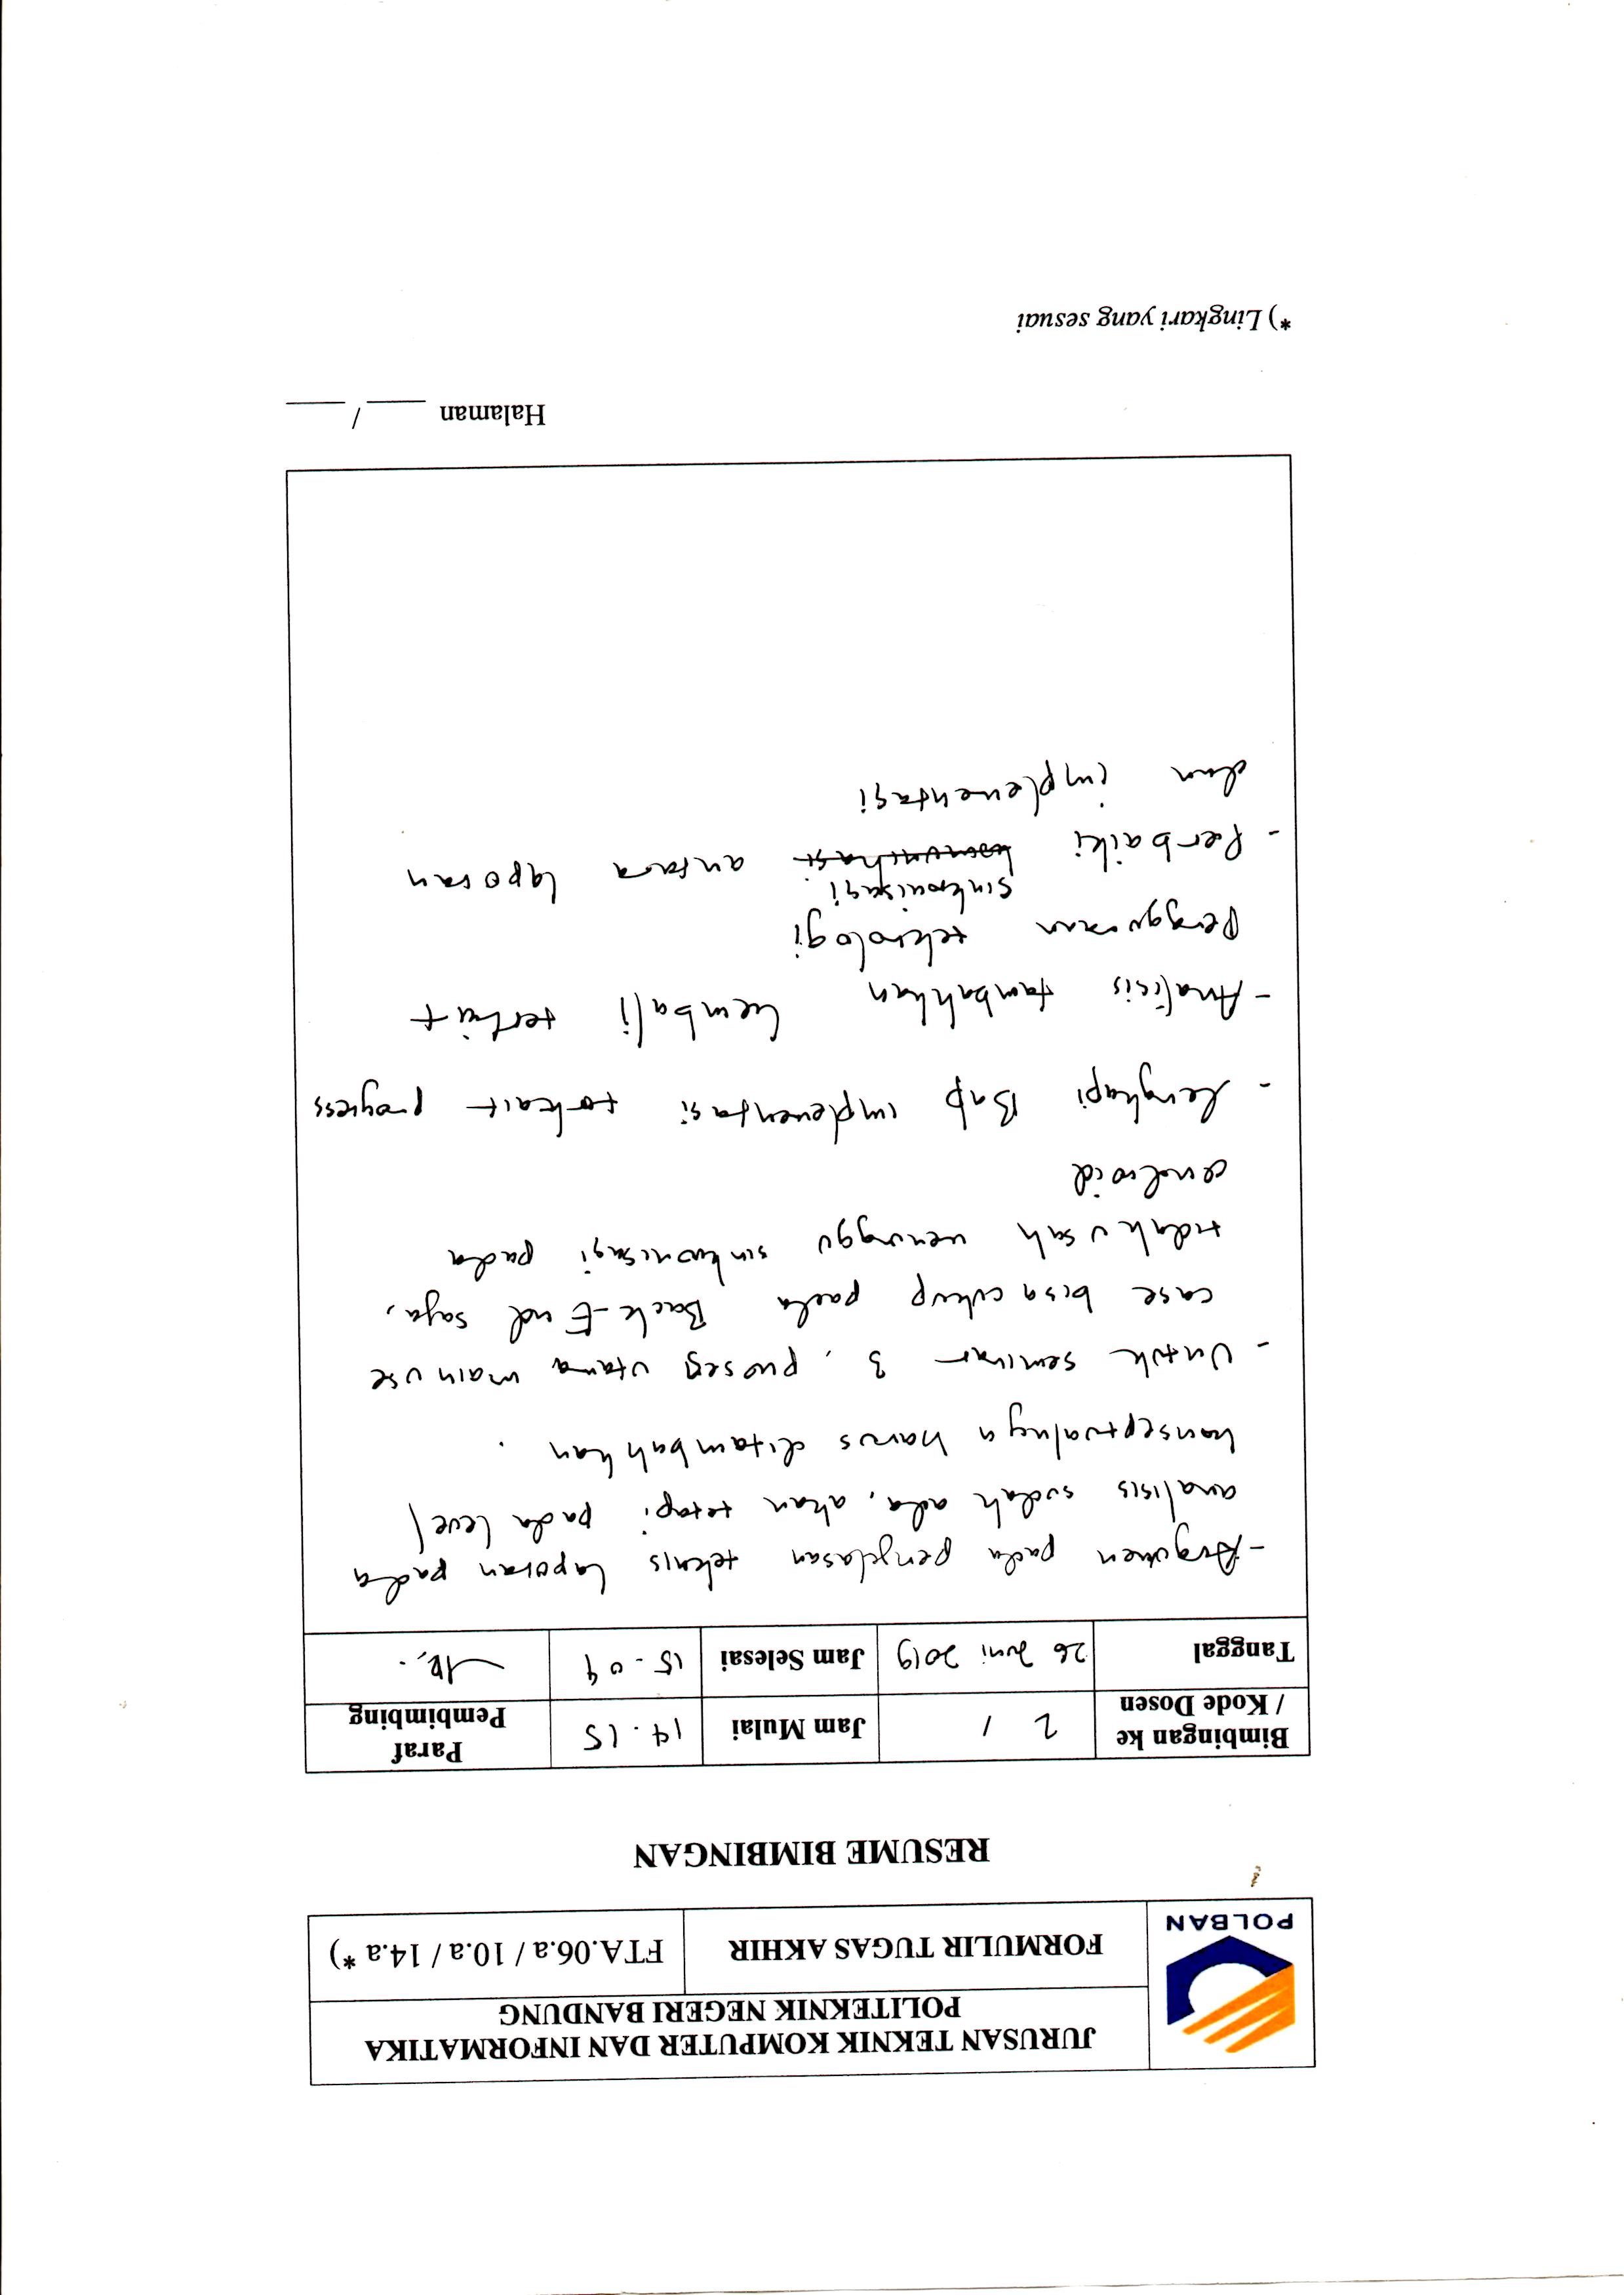 JURUSAN TEKNIK KOMPUTER DAN INFORMATIKA
POLITEKNIK NEGERI BANDUNG
POLBAN
FORMULIR TUGAS AKHIR
FTA.06.a / 10.a / 14.a *)
RESUME BIMBINGAN
Bimbingan ke / Kode Dosen
2 /
Jam Mulai
14.15
Paraf Pembimbing
Tanggal
26 Juni 2019
Jam Selesai
15.04
- Argumen pada penjelasan teknis laporan pada
analisis sudah ada, akan tetapi pada level
konseptualnya harus ditambahkan.
- Untuk seminar 3, proses utama main use
case bisa cukup pada Back-End saja,
tidak usah menunggu sinkronisasi pada
android
- Lengkapi Bab implementasi terkait progress
- Analisis tambahkan kembali terkait
penggunaan teknologi
sinkronisasi
- Perbaiki antara laporan
dan implementasi
Halaman ____ / ____
*) Lingkari yang sesuai